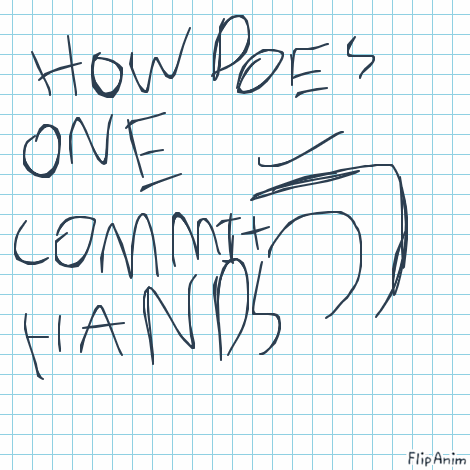 HOW DOES
ONE
COMMIT
HANDS
FlipAnim